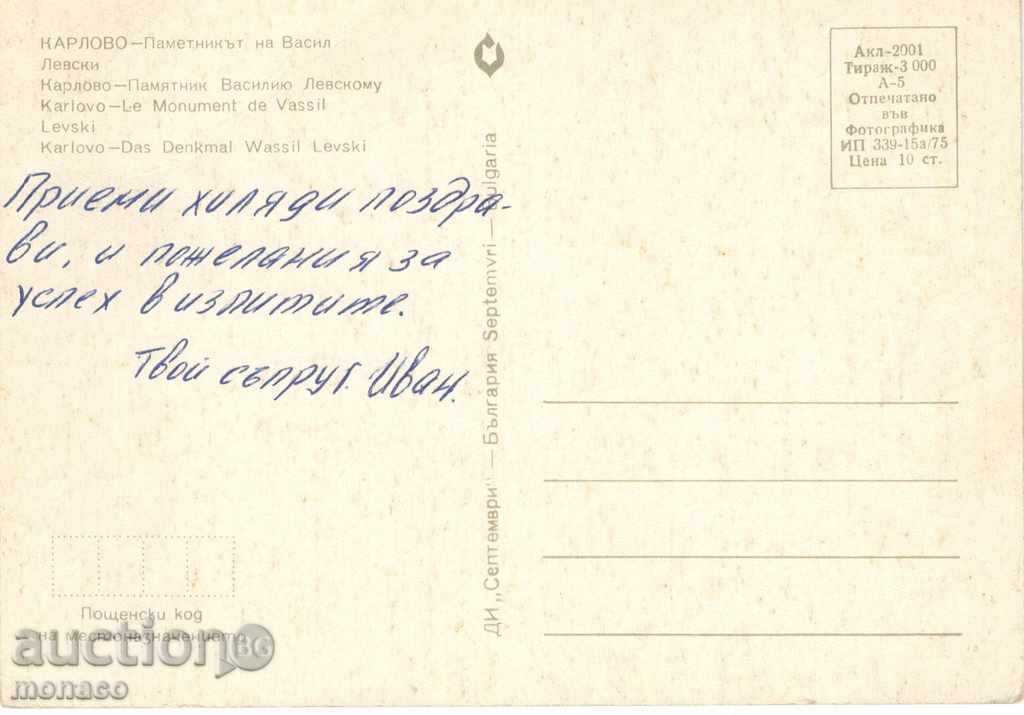 КАРЛОВО—Паметникът на Васил
Левски
Карлово—Памятник Василию Левскому
Karlovo—Le Monument de Vassil
Levski
Karlovo—Das Denkmal Wassil Levski
Приеми хиляди поздра-
ви, и пожелания за
успех в изпитите.
Твой съпруг. Иван.
Пощенски код
на местоназначението
ДИ „Септември" — България Septemvri — Bulgaria
Акл-2001
Тираж-3 000
А-5
Отпечатано
във
Фотографика
ИП 339-15а/75
Цена 10 ст.
auction BG
monaco